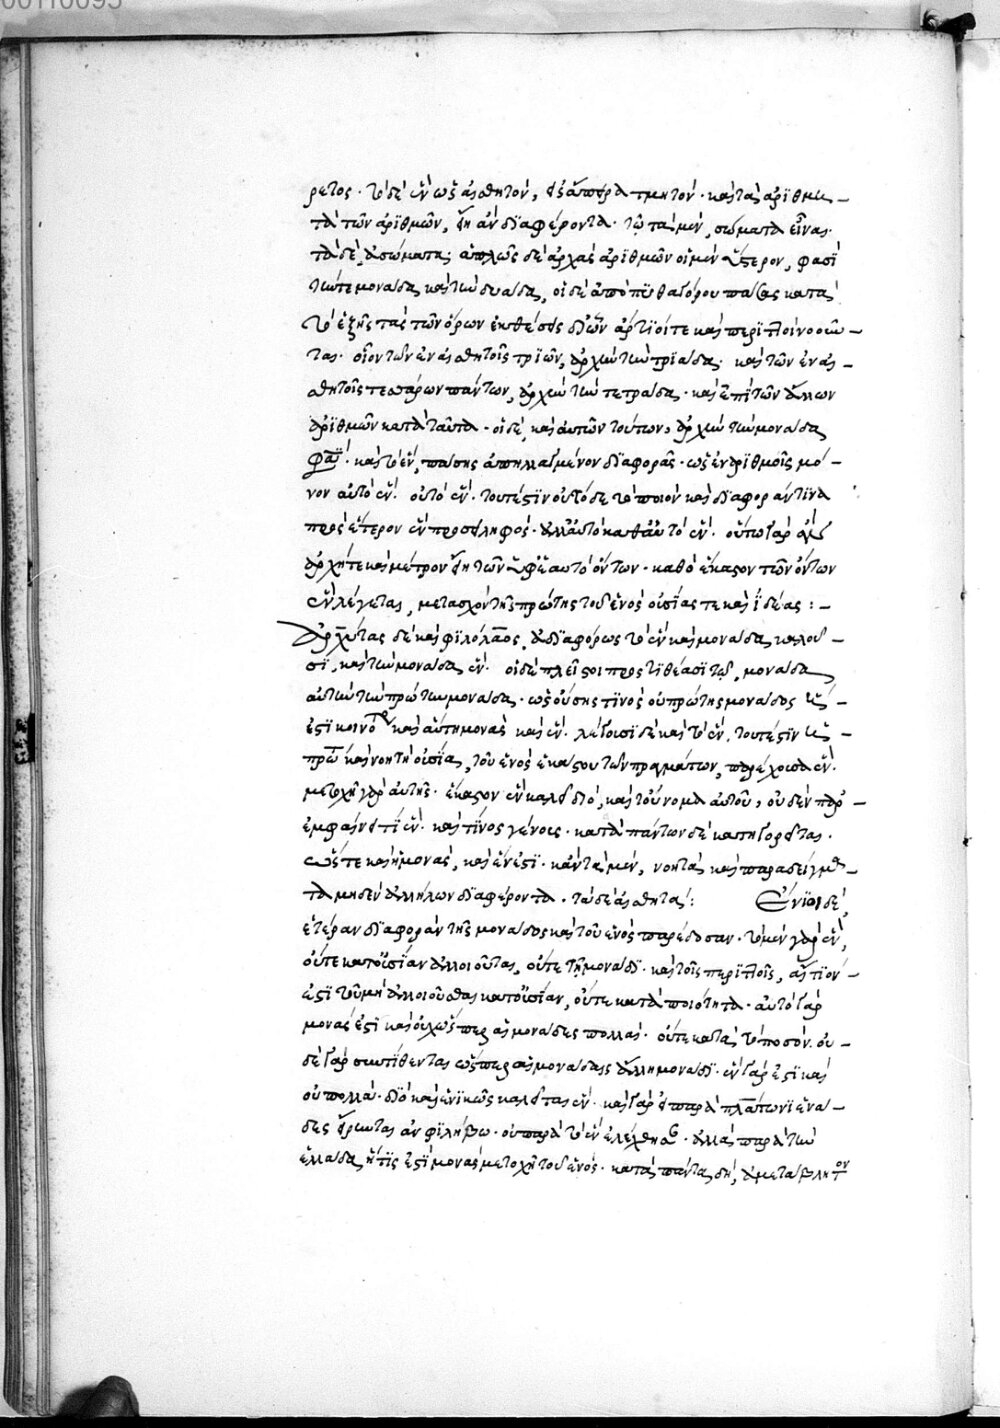 ρετος· τὸ δὲ ἓν ὡς αἰσθητὸν, ἐπ' ἄπειρα τμητόν· καὶ τὰ ἀριθμη-
τὰ τῶν ἀριθμῶν, εἴη ἂν διαφέροντα· τῷ τὰ μὲν, σώματα εἶναι·
τὰ δὲ, ἀσώματα; ἁπλῶς δὲ ἀρχὰς ἀριθμῶν οἱ μὲν ὕστερον, φασὶ
τήν τε μονάδα καὶ τὴν δυάδα, οἱ δὲ ἀπὸ πυθαγόρου πάσας κατὰ
τὸ ἑξῆς τὰς τῶν ὅρων ἐκθέσεις δι' ὧν ἄρτιοί τε καὶ περιττοὶ νοοῦν-
ται· οἷον τῶν ἐν αἰσθητοῖς τριῶν, ἀρχὴν τὴν τριάδα· καὶ τῶν ἐν αἰσ-
θητοῖς τεσσάρων πάντων, ἀρχὴν τὴν τετράδα· καὶ ἐπὶ τῶν ἄλλων
ἀριθμῶν κατὰ ταῦτα· οἱ δὲ, καὶ αὐτῶν τούτων, ἀρχὴν τὴν μονάδα
φασί· καὶ τὸ ἓν, πάσης ἀπηλλαγμένον διαφορᾶς· ὡς ἐν ἀριθμοῖς μό-
νον αὐτὸ ἕν· οὐ τὸ ἕν· τουτέστιν οὐ τόδε τὸ ποιὸν καὶ διαφοράν τινα
πρὸς ἕτερον ἓν προσειληφός· ἀλλ' αὐτὸ καθ' αὑτὸ ἕν· οὕτω γὰρ ἂν
ἀρχή τε καὶ μέτρον εἴη τῶν ὑφ' ἑαυτὸ ὄντων· καθὸ ἕκαστον τῶν ὄντων
ἓν λέγεται, μετασχὸν τῆς πρώτης τοῦ ἑνὸς οὐσίας τε καὶ ἰδέας:-
Ἀρχύτας δὲ καὶ φιλόλαος, ἀδιαφόρως τὸ ἓν καὶ μονάδα καλοῦ-
σι, καὶ τὴν μονάδα ἕν· οἱ δὲ πλεῖστοι προστιθέασι τῷ, μονάδα
αὐτὴν τὴν πρώτην μονάδα· ὡς οὔσης τινὸς οὐ πρώτης μονάδος
ἐστὶ κοινὸ καὶ αὕτη μονὰς καὶ ἕν· λέγουσι δὲ καὶ τὸ ἕν, τουτέστιν
πρώτη καὶ νοητὴ οὐσία, τοῦ ἑνὸς ἑκάστου τῶν πραγμάτων, παρέχουσα ἕν·
μετοχῇ γὰρ αὐτῆς· ἕκαστον ἓν καλεῖ διὸ, καὶ τοὔνομα αὐτοῦ, οὐδὲν παρ-
εμφαίνει τί ἕν· καὶ τίνος γένους· κατὰ πάντων δὲ κατηγορεῖται·
ὥστε καὶ ἡ μονὰς, καὶ ἕν ἐστι· κἂν τὰ μὲν, νοητὰ καὶ παραδείγματα-
τὰ μηδὲν ἀλλήλων διαφέροντα· τὰ δὲ αἰσθητά: Ἔνιοι δὲ,
ἑτέραν διαφορὰν τῆς μονάδος καὶ τοῦ ἑνὸς παρέδοσαν· τὸ μὲν γὰρ ἓν,
οὔτε κατ' οὐσίαν ἀλλοιοῦται, οὔτε τῇ μονάδι· καὶ τοῖς περιττοῖς, αἴτιόν-
ἐστι τοῦ μὴ ἀλλοιοῦσθαι κατ' οὐσίαν, οὔτε κατὰ ποιότητα· αὐτὸ γὰρ
μονάς ἐστι καὶ οὐχ ὥσπερ αἱ μονάδες πολλαί· οὔτε κατὰ τὸ ποσόν· οὐ-
δὲ γὰρ συντίθεται ὥσπερ αἱ μονάδες ἄλλη μονάδι· ἓν γάρ ἐστι καὶ
οὐ πολλά· διὸ καὶ ἑνικῶς καλεῖται ἕν· καὶ γὰρ εἰ παρὰ πλάτωνι ἑνά-
δες εἴρηνται ἐν φιλήβῳ· οὐ παρὰ τὸ ἓν ἐλέχθησαν· ἀλλὰ παρὰ τὴν
ἑνάδα, ἥτις ἐστὶ μονὰς μετοχῇ τοῦ ἑνός· κατὰ πάντα δὴ, ἀμετάβλητον